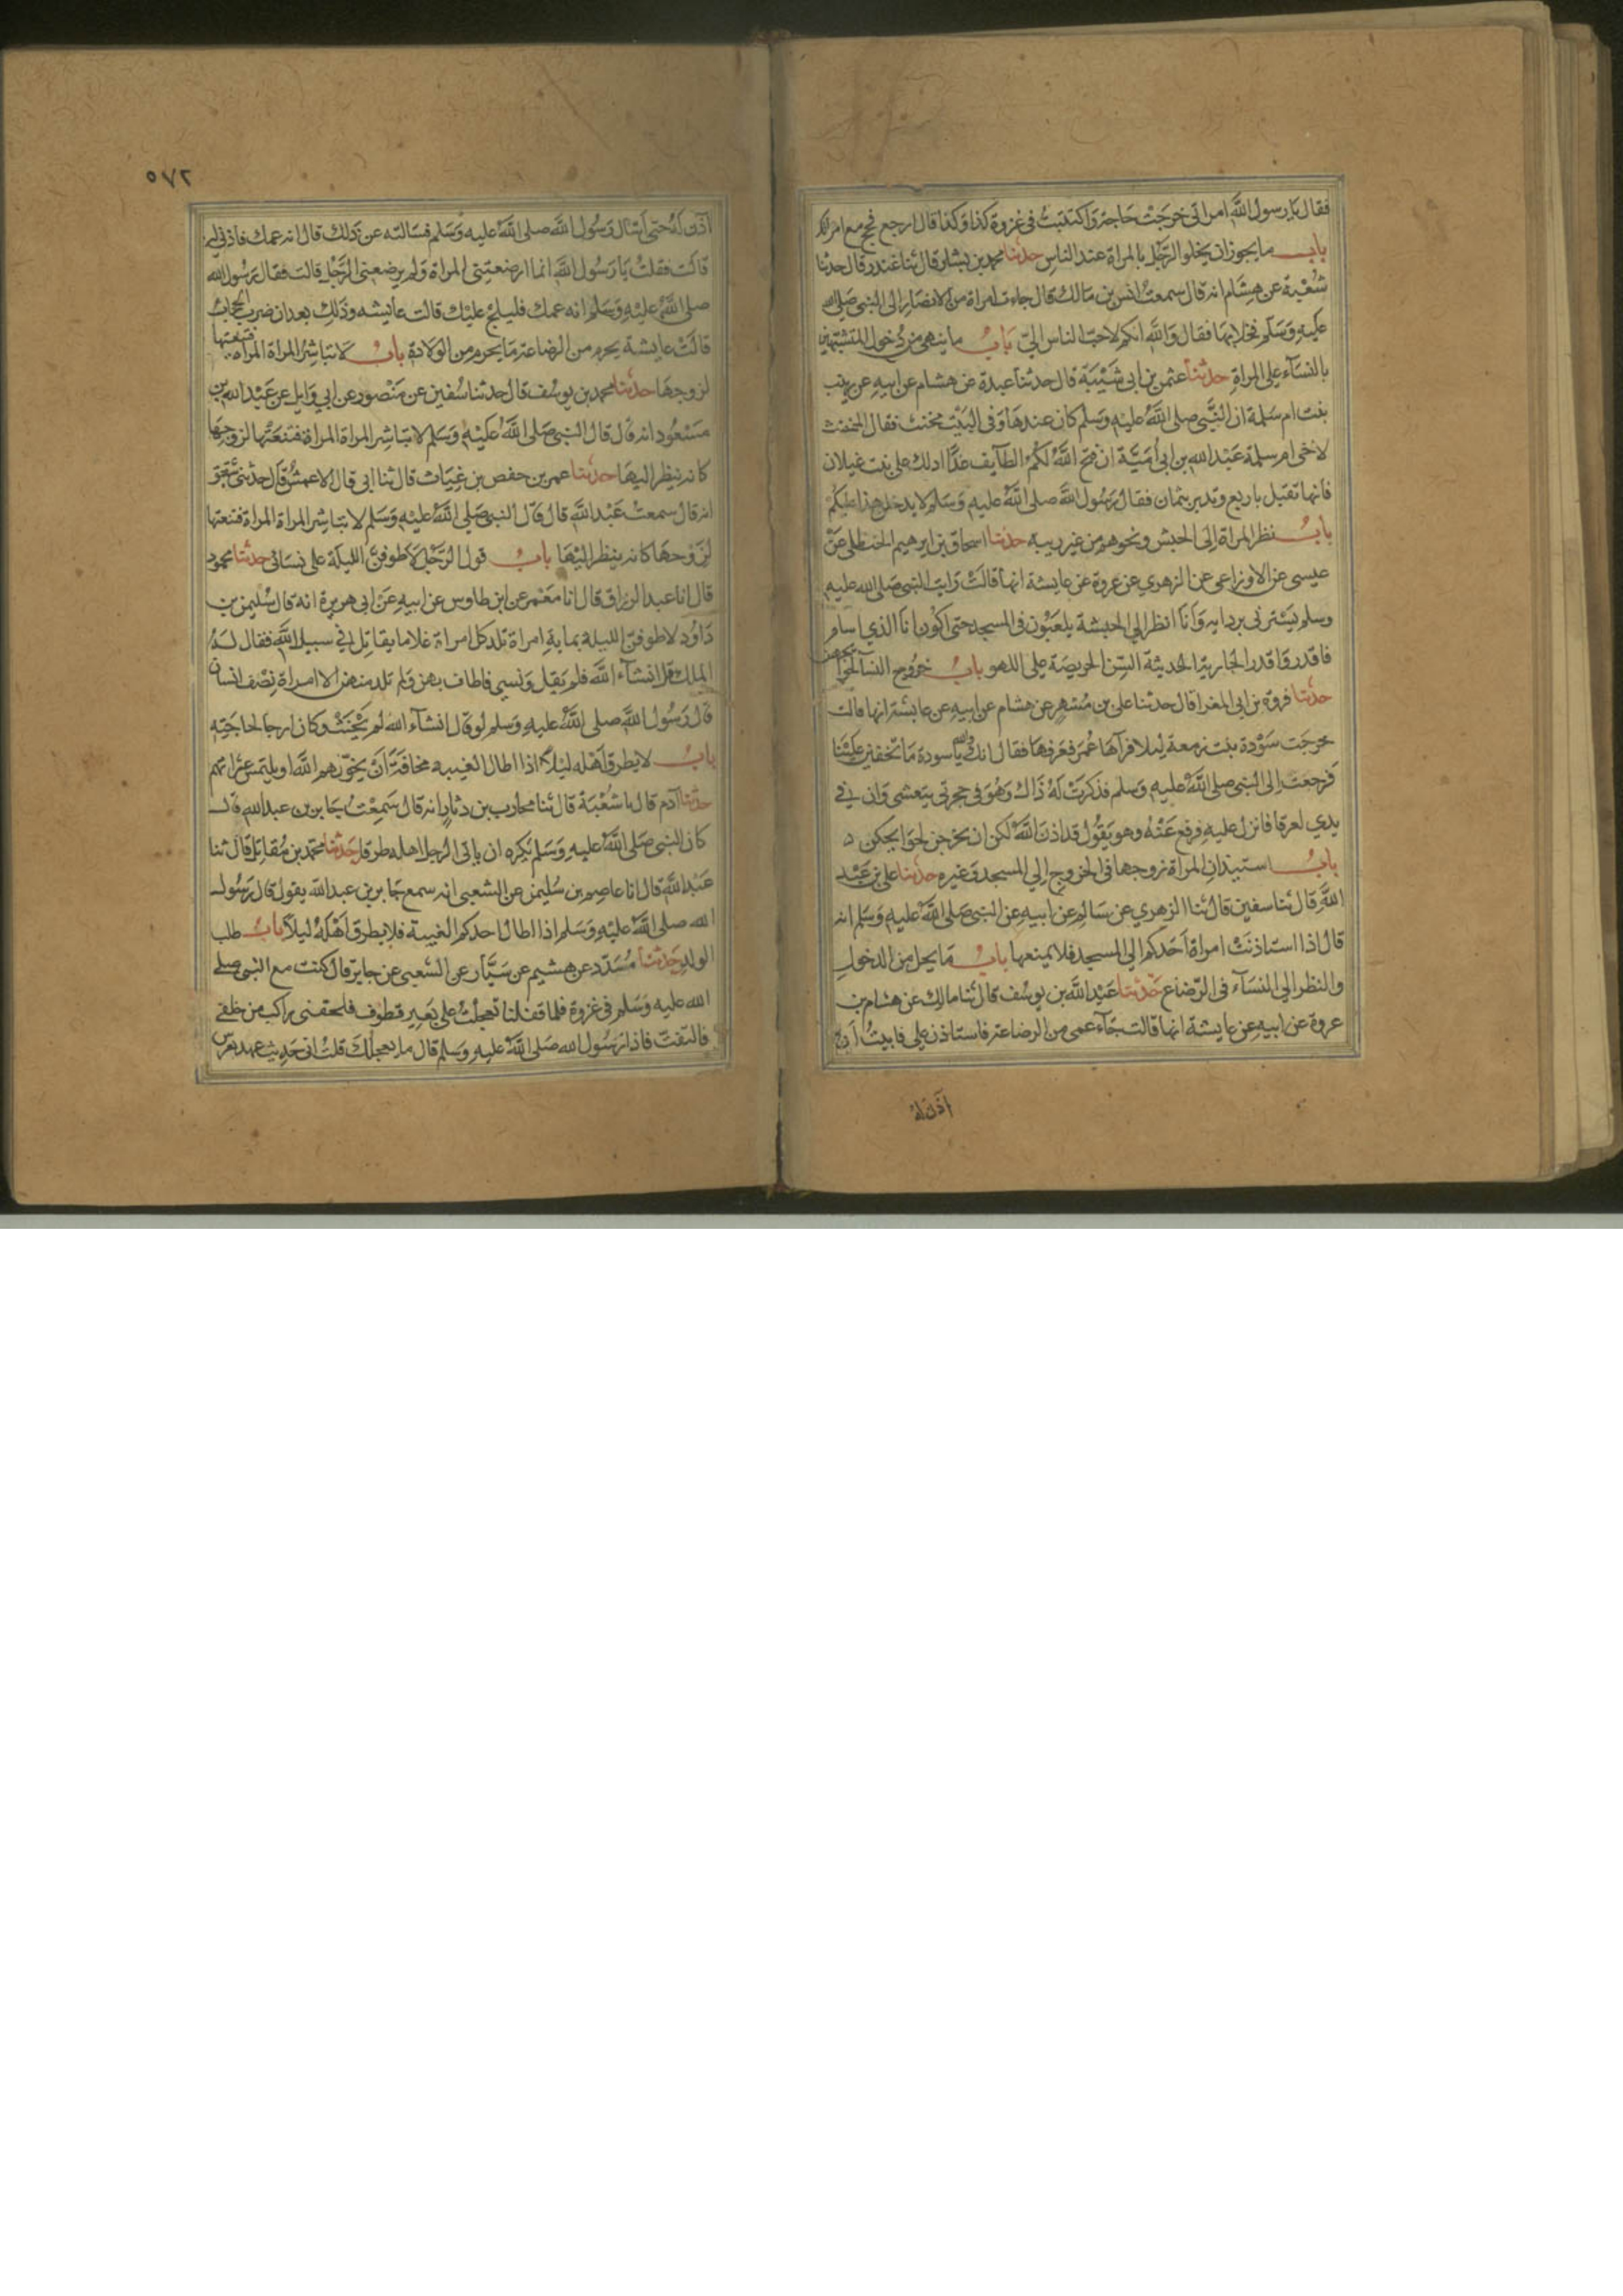 فقال يا رسول الله امراتى خرجت حاجة واكتتبت فى غزوة كذا وكذا قال ارجع فحج مع امراتك
باب ما يجوز ان يخلو الرجل بالمراة عند الناس حدثنا محمد بن بشار قال ثنا غندر قال حدثنا
شعبة عن هشام انه قال سمعت انس بن مالك قال جاءت امراة من الانصار الى النبى صلى الله
عليه وسلم فخلا بها فقال والله انكم لاحب الناس الى باب ما ينهى من دخول المتشبهين
بالنسآء على المراة حدثنا عثمن بن ابى شيبة قال حدثنا عبدة عن هشام عن ابيه عن زينب
بنت ام سلمة ان النبى صلى الله عليه وسلم كان عندها وفى البيت مخنث فقال المخنث
لاخى ام سلمة عبد الله بن ابى امية ان فتح الله لكم الطايف غدا ادلك على بنت غيلان
فانها تقبل باربع وتدبر بثمان فقال رسول الله صلى الله عليه وسلم لا يدخلن هذا عليكم
باب نظر المراة الى الحبش ونحوهم من غير ريبه حدثنا اسحاق بن ابرهيم الحنظلى عن
عيسى عن الاوزاعى عن الزهري عن عروة عن عايشة انها قالت رايت النبى صلى الله عليه
وسلم يسترنى بردايه وانا انظر الى الحبشة يلعبون فى المسجد حتى اكون انا الذي اسام
فاقدروا قدر الجارية الحديثة السن الحريصة على اللهو باب خروج النسآ لحوايجهن
حدثنا فروة بن ابى المغرا قال حدثنا على بن مسهر عن هشام عن ابيه عن عايشة انها قالت
خرجت سودة بنت زمعة ليلا فرآها عمر فعرفها فقال انك والله يا سودة ما تخفين علينا
فرجعت الى النبى صلى الله عليه وسلم فذكرت له ذاك وهو فى حجرتى يتعشى وان فى
يدي لعرقا فانزل عليه فرفع عنه وهو يقول قد اذن الله لكن ان تخرجن لحوايجكن
باب استيذان المراة زوجها فى الخروج الى المسجد وغيره حدثنا على بن عبد
الله قال ثنا سفين قال ثنا الزهري عن سالم عن ابيه عن النبى صلى الله عليه وسلم انه
قال اذا استاذنت امراة احدكم الى المسجد فلا يمنعها باب ما يحل من الدخول
والنظر الى النسآء فى الرضاع حدثنا عبد الله بن يوسف قال ثنا مالك عن هشام بن
عروة عن ابيه عن عايشة انها قالت جآء عمى من الرضاعة فاستاذن على فابيت ان
آذن له
٥٧٢
آذن له حتى اسال رسول الله صلى الله عليه وسلم فسالته عن ذلك قال انه عمك فاذنى له
قالت فقلت يا رسول الله انما ارضعتنى المراة ولم يرضعنى الرجل قالت فقال رسول الله
صلى الله عليه وسلم انه عمك فليلج عليك قالت عايشه وذلك بعد ان ضرب الحجاب
قالت عايشة يحرم من الرضاعة ما يحرم من الولادة باب لا تباشر المراة المراة فتنعتها
لزوجها حدثنا محمد بن يوسف قال حدثنا سفين عن منصور عن ابى وايل عن عبد الله بن
مسعود انه قال قال النبى صلى الله عليه وسلم لا تباشر المراة المراة فتنعتها لزوجها
كانه ينظر اليها حدثنا عمر بن حفص بن غياث قال ثنا ابى قال الاعمش قال حدثنى شقيق
انه قال سمعت عبد الله قال قال النبى صلى الله عليه وسلم لا تباشر المراة المراة فتنعتها
لزوجها كانه ينظر اليها باب قول الرجل لاطوفن الليلة على نسائى حدثنا محمود
قال انا عبد الرزاق قال انا معمر عن ابن طاوس عن ابيه عن ابى هريرة انه قال سليمن بن
داود لاطوفن الليلة بماية امراة تلد كل امراة غلاما يقاتل فى سبيل الله فقال له
الملك قل انشآء الله فلم يقل ونسى فاطاف بهن ولم تلد منهن الا امراة نصف انسان
قال رسول الله صلى الله عليه وسلم لو قال انشآء الله لم يحنث وكان ارجا لحاجته
باب لا يطرق اهله ليلا اذا اطال الغيبه مخافة ان يخونهم الله او يلتمس عثراتهم
حدثنا آدم قال نا شعبة قال ثنا محارب بن دثار انه قال سمعت جابر بن عبد الله قال
كان النبى صلى الله عليه وسلم يكره ان ياتى الرجل اهله طرقا حدثنا محمد بن مقاتل قال ثنا
عبد الله قال انا عاصم بن سليمن عن الشعبى انه سمع جابر بن عبد الله يقول قال رسول
الله صلى الله عليه وسلم اذا اطال احدكم الغيبة فلا يطرق اهله ليلا باب طلب
الولد حدثنا مسدد عن هشيم عن سيار عن الشعبى عن جابر قال كنت مع النبى صلى
الله عليه وسلم فى غزوة فلما قفلنا تعجلت على بعير قطوف فلحقنى راكب من خلفى
فالتفت فاذا رسول الله صلى الله عليه وسلم قال ما يعجلك قلت انى حديث عهد بعرس